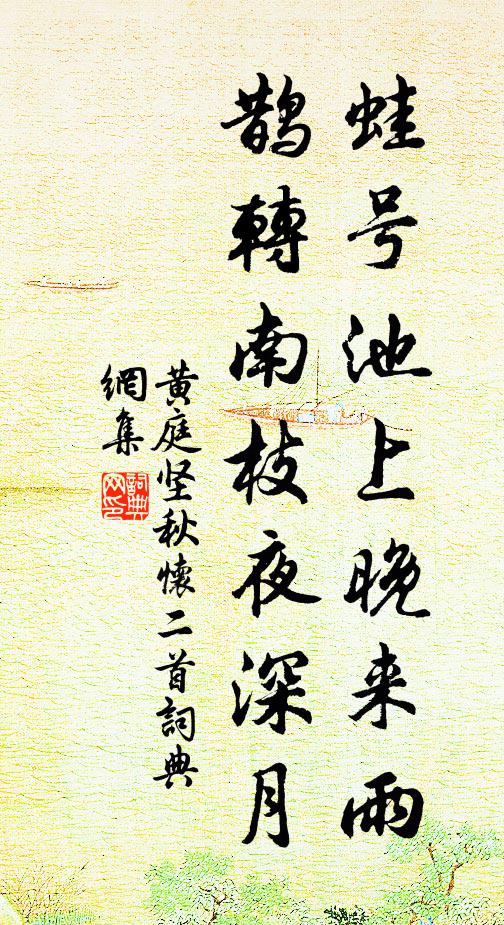 蛙号池上晚来雨
鹊轉南枝夜深月
黄庭坚秋懷二首詞典
網集
詞典
网印